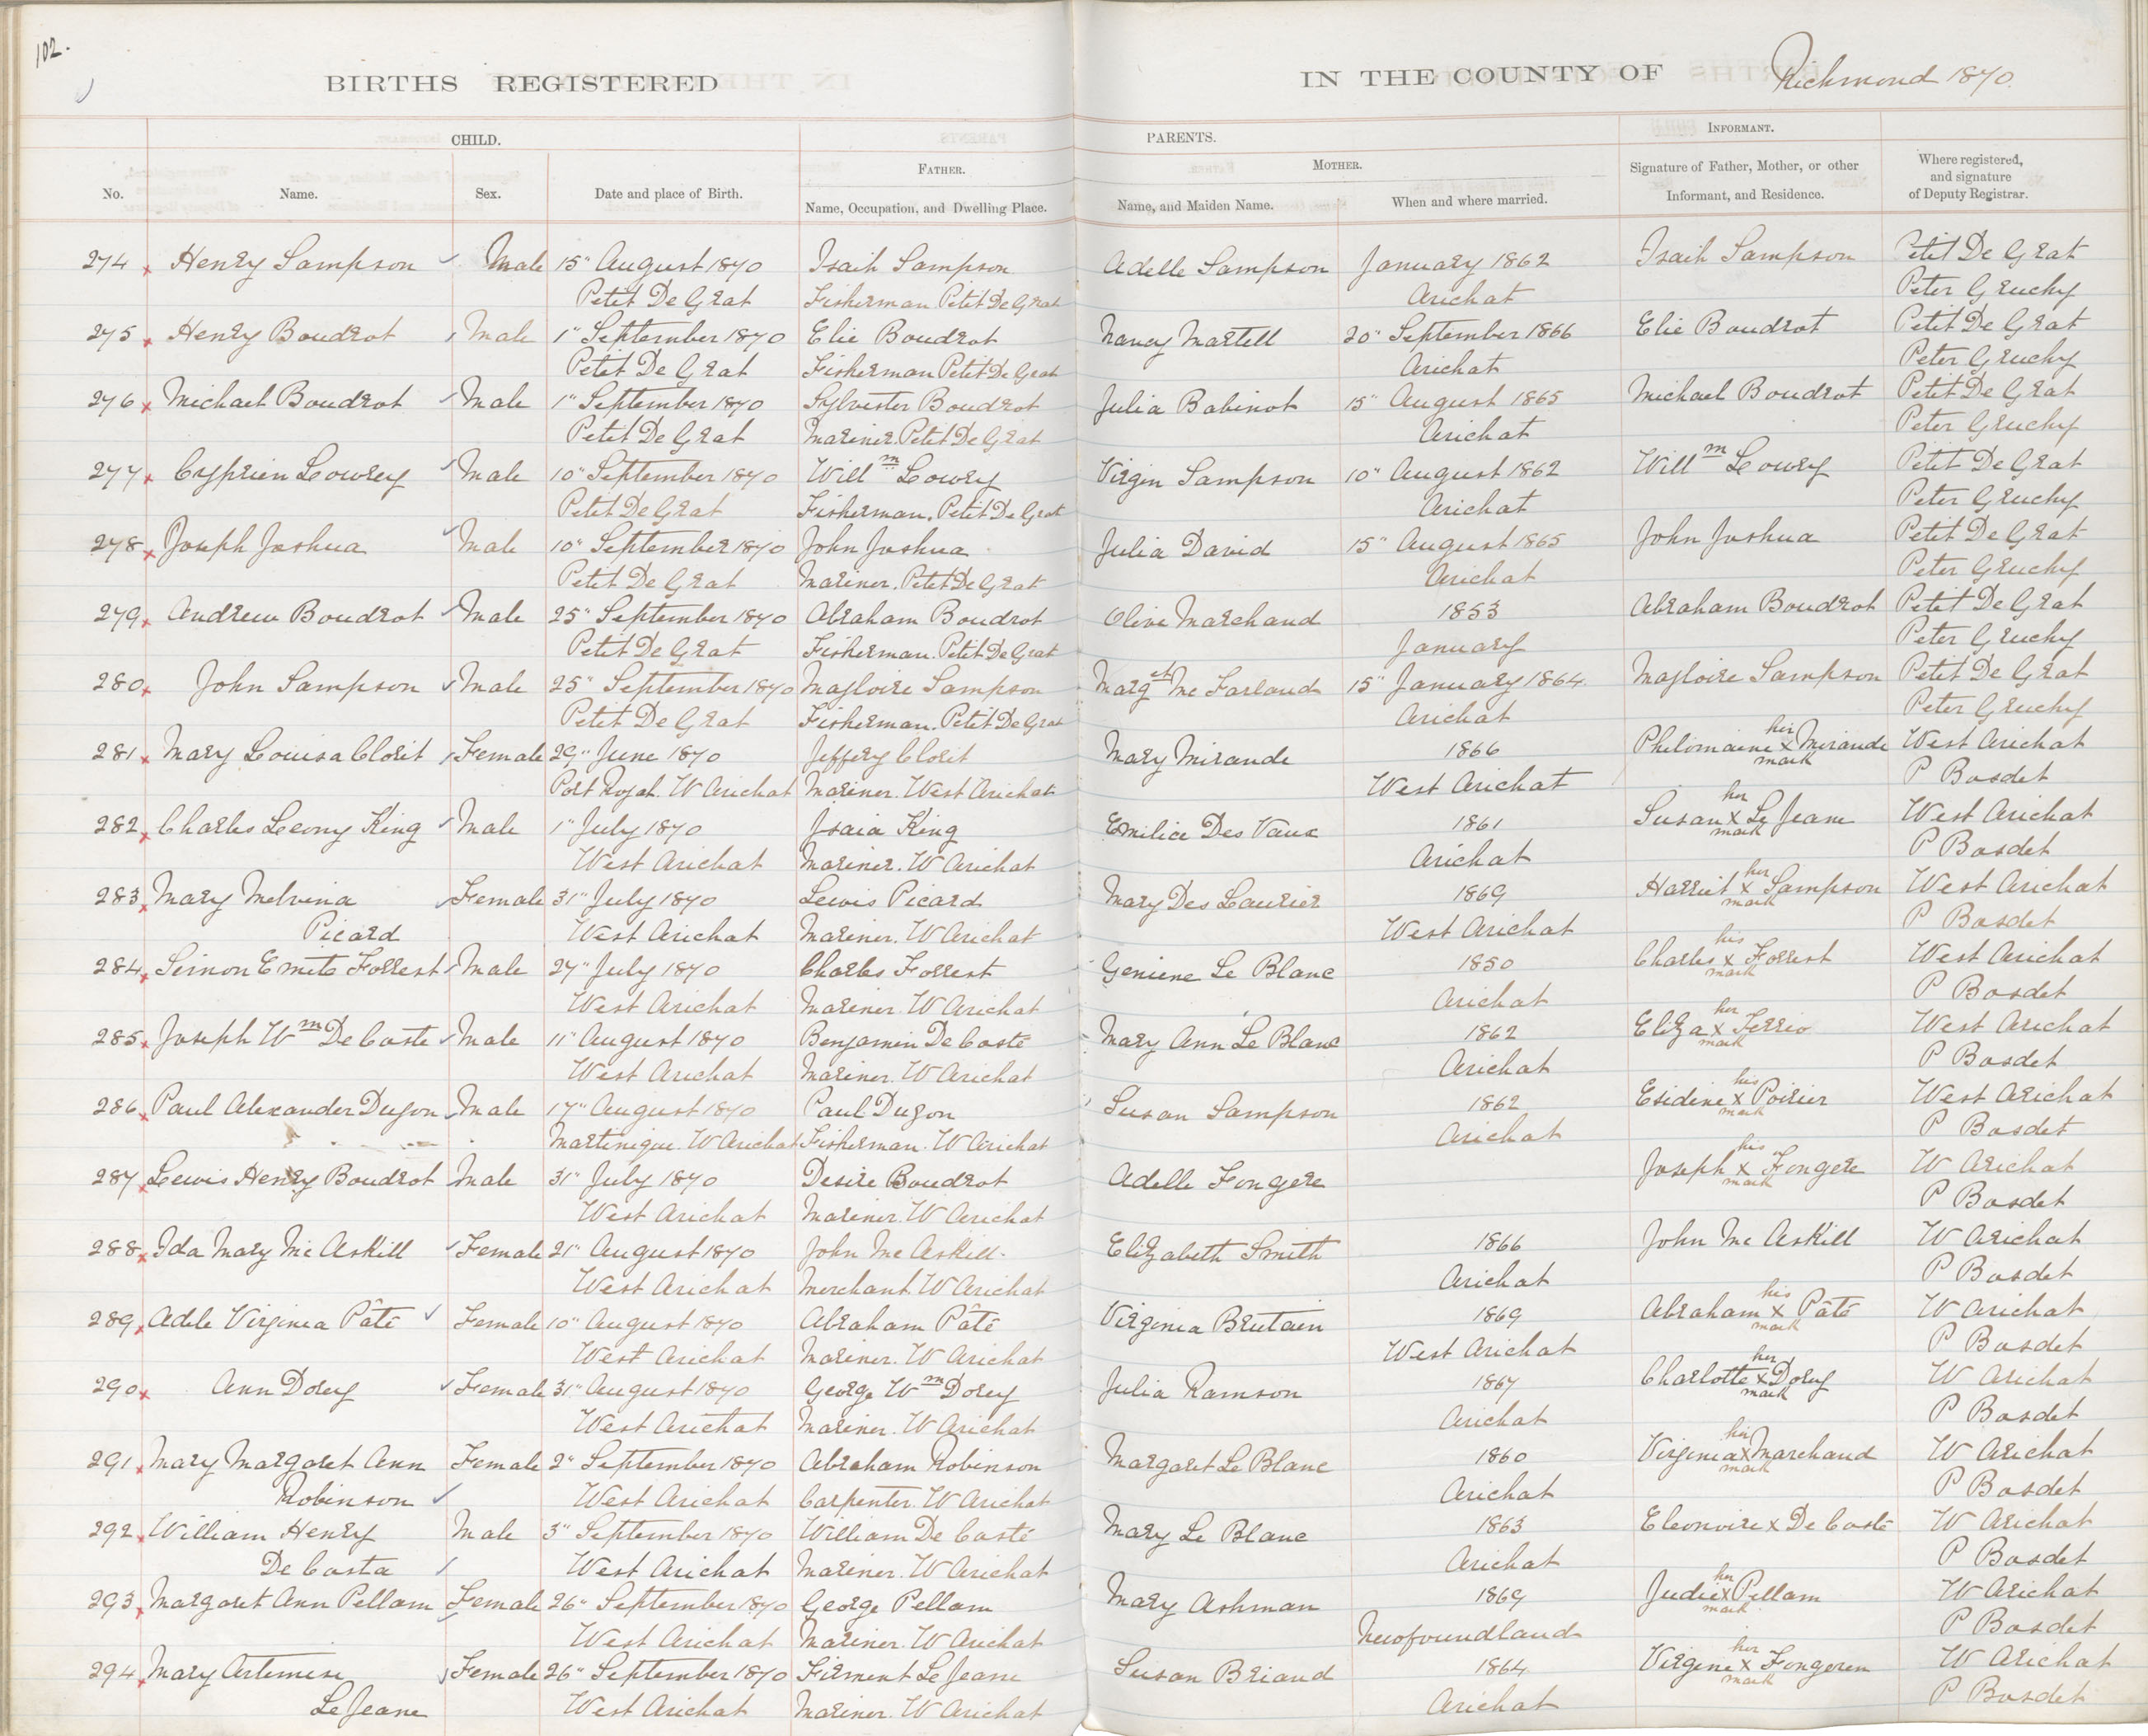 102.
BIRTHS REGISTERED IN THE COUNTY OF Richmond 1870.
CHILD. PARENTS. INFORMANT.
FATHER. MOTHER.
No. Name. Sex. Date and place of Birth. Name, Occupation, and Dwelling Place. Name, and Maiden Name. When and where married. Signature of Father, Mother, or other Informant, and Residence. Where registered, and signature of Deputy Registrar.
274 Henry Sampson Male 15" August 1870 Isaih Sampson Adelle Sampson January 1862 Isaih Sampson Petit De Grat
Petit De Grat Fisherman Petit De Grat Arichat Peter Gruchy
275 Henry Boudrot Male 1" September 1870 Elie Boudrot Nancy Martell 20" September 1866 Elie Boudrot Petit De Grat
Petit De Grat Fisherman Petit De Grat Arichat Peter Gruchy
276 Michael Boudrot Male 1" September 1870 Sylvester Boudrot Julia Babinot 15" August 1865 Michael Boudrot Petit De Grat
Petit De Grat Mariner. Petit De Grat Arichat Peter Gruchy
277 Cyprien Lowrey Male 10" September 1870 Willm Lowry Virgin Sampson 10" August 1862 Willm Lowry Petit De Grat
Petit De Grat Fisherman. Petit De Grat Arichat Peter Gruchy
278 Joseph Joshua Male 10" September 1870 John Joshua Julia David 15" August 1865 John Joshua Petit De Grat
Petit De Grat Mariner. Petit De Grat Arichat Peter Gruchy
279 Andrew Boudrot Male 25" September 1870 Abraham Boudrot Olive Marchand 1853 Abraham Boudrot Petit De Grat
Petit De Grat Fisherman. Petit De Grat January Peter Gruchy
280 John Sampson Male 25" September 1870 Magloire Sampson Marget Mc Farland 15" January 1864. Magloire Sampson Petit De Grat
Petit De Grat Fisherman. Petit De Grat Arichat Peter Gruchy
281 Mary Louisa Clorit Female 29" June 1870 Jeffery Clorit Mary Mirande 1866 Philomaine her x mark Mirande West Arichat
Port Royal. W Arichat Mariner. West Arichat West Arichat P Bosdet
282 Charles Leony King Male 1" July 1870 Isaia King Emilie Des Vaux 1861 Susan her x mark Le Jeane West Arichat
West Arichat Mariner. W Arichat Arichat P Bosdet
283 Mary Melvina Female 31" July 1870 Lewis Picard Mary Des Laurier 1869 Harriet her x mark Sampson West Arichat
Picard West Arichat Mariner. W Arichat West Arichat P Bosdet
284 Simon Emile Forrest Male 27" July 1870 Charles Forrest Geniene Le Blanc 1850 Charles his x mark Forrest West Arichat
West Arichat Mariner. W Arichat Arichat P Bosdet
285 Joseph Wm De Coste Male 11" August 1870 Benjamin De Costé Mary Ann Le Blanc 1862 Eliza her x mark Terrio West Arichat
West Arichat Mariner. W Arichat Arichat P Bosdet
286 Paul Alexander Dugon Male 17" August 1870 Paul Dugon Susan Sampson 1862 Esidine his x mark Poirier West Arichat
Martinique. W Arichat Fisherman. W Arichat Arichat P Bosdet
287 Lewis Henry Boudrot Male 31" July 1870 Desire Boudrot Adelle Fongere Joseph his x mark Fongere W Arichat
West Arichat Mariner. W Arichat P Bosdet
288 Ida Mary Mc Askill Female 21" August 1870 John Mc Askill. Elizabeth Smith 1866 John Mc Askill W Arichat
West Arichat Merchant. W Arichat Arichat P Bosdet
289 Adele Virginia Pâté Female 10" August 1870 Abraham Pâté Virginia Brutain 1869 Abraham his x mark Pâté W Arichat
West Arichat Mariner. W Arichat West Arichat P Bosdet
290 Ann Dorey Female 31" August 1870 George Wm Dorey Julia Ramson 1867 Charlotte her x mark Dorey W Arichat
West Arichat Mariner. W Arichat Arichat P Bosdet
291 Mary Margaret Ann Female 2" September 1870 Abraham Robinson Margaret Le Blanc 1860 Virginia her x mark Marchand W Arichat
Robinson West Arichat Carpenter. W Arichat Arichat P Bosdet
292 William Henry Male 3" September 1870 William De Costé Mary Le Blanc 1863 Eleonoire x De Costé W Arichat
De Costa West Arichat Mariner. W Arichat Arichat P Bosdet
293 Margaret Ann Pellam Female 26" September 1870 George Pellam Mary Ashman 1869 Judie her x mark Pellam W Arichat
West Arichat Mariner. W Arichat Newfoundland P Bosdet
294 Mary Artemise Female 26" September 1870 Firment Le Jeane Susan Briand 1864 Virginie her x mark Fongeren W Arichat
Le Jeane West Arichat Mariner. W Arichat Arichat P Bosdet